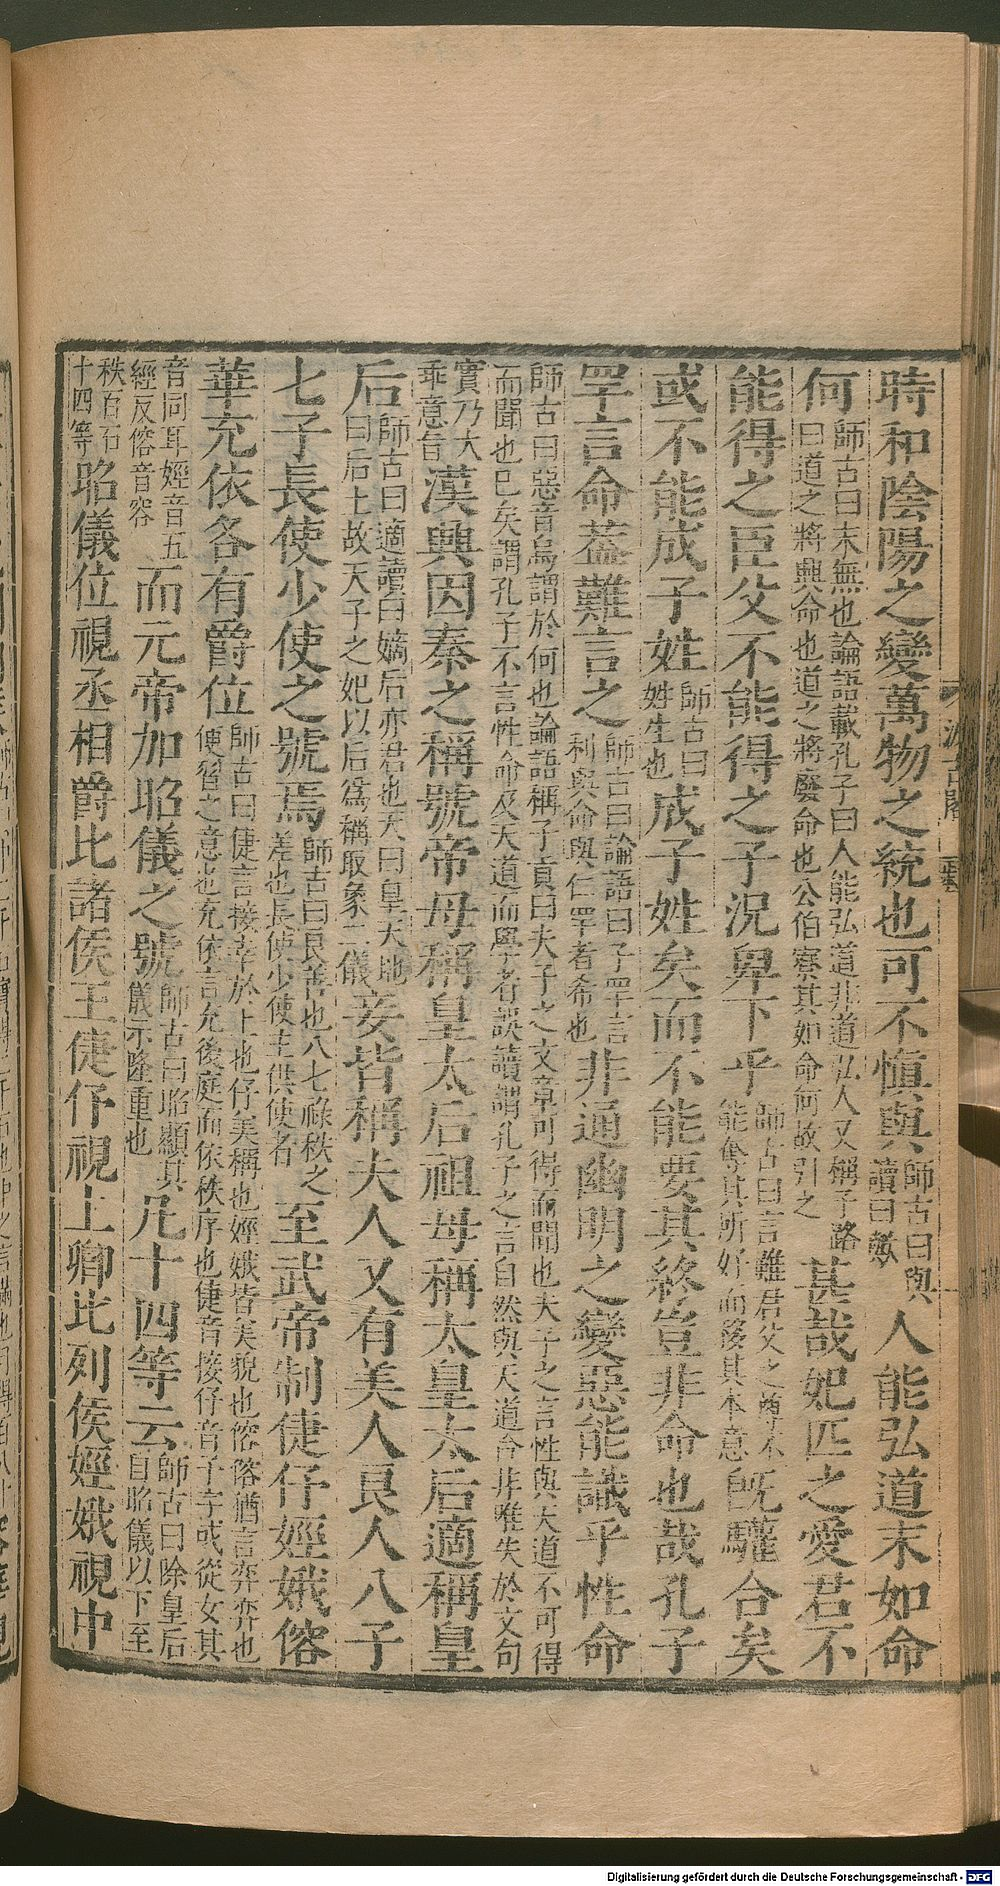 時和陰陽之變萬物之統也可不慎與師古曰與讀曰歟人能弘道末如命
何師古曰末無也論語載孔子曰人能弘道非道弘人又稱子路曰道之將興命也道之將廢命也公伯寮其如命何故引之甚哉妃匹之愛君不
能得之臣父不能得之子況卑下乎師古曰言雖君父之尊不能奪其所好而移其本意既驩合矣
或不能成子姓師古曰姓生也成子姓矣而不能要其終豈非命也哉孔子
罕言命蓋難言之師古曰論語曰子罕言利與命與仁罕者希也非通幽明之變惡能識乎性命
師古曰惡音烏謂於何也論語稱子貢曰夫子之文章可得而聞也夫子之言性與天道不可得而聞也已矣謂孔子不言性命及天道而學者誤讀謂孔子之言自然與天道合非唯失於文句
實乃大乖意旨漢興因秦之稱號帝母稱皇太后祖母稱太皇太后適稱皇
后師古曰適讀曰嫡后亦君也天曰皇天地曰后土故天子之妃以后為稱取象二儀妾皆稱夫人又有美人良人八子
七子長使少使之號焉師古曰良善也八七祿秩之差也長使少使主供使者至武帝制倢伃娙娥傛
華充依各有爵位師古曰倢言接幸於上也伃美稱也娙娥皆美貌也傛傛猶言奕奕也便習之意也充依言充後庭而依秩序也倢音接伃音予字或從女其
音同耳娙音五經反傛音容而元帝加昭儀之號師古曰昭顯其儀示隆重也凡十四等云師古曰除皇后自昭儀以下至
秩百石十四等昭儀位視丞相爵比諸侯王倢伃視上卿比列侯娙娥視中
汲古閣
Digitalisierung gefördert durch die Deutsche Forschungsgemeinschaft - DFG